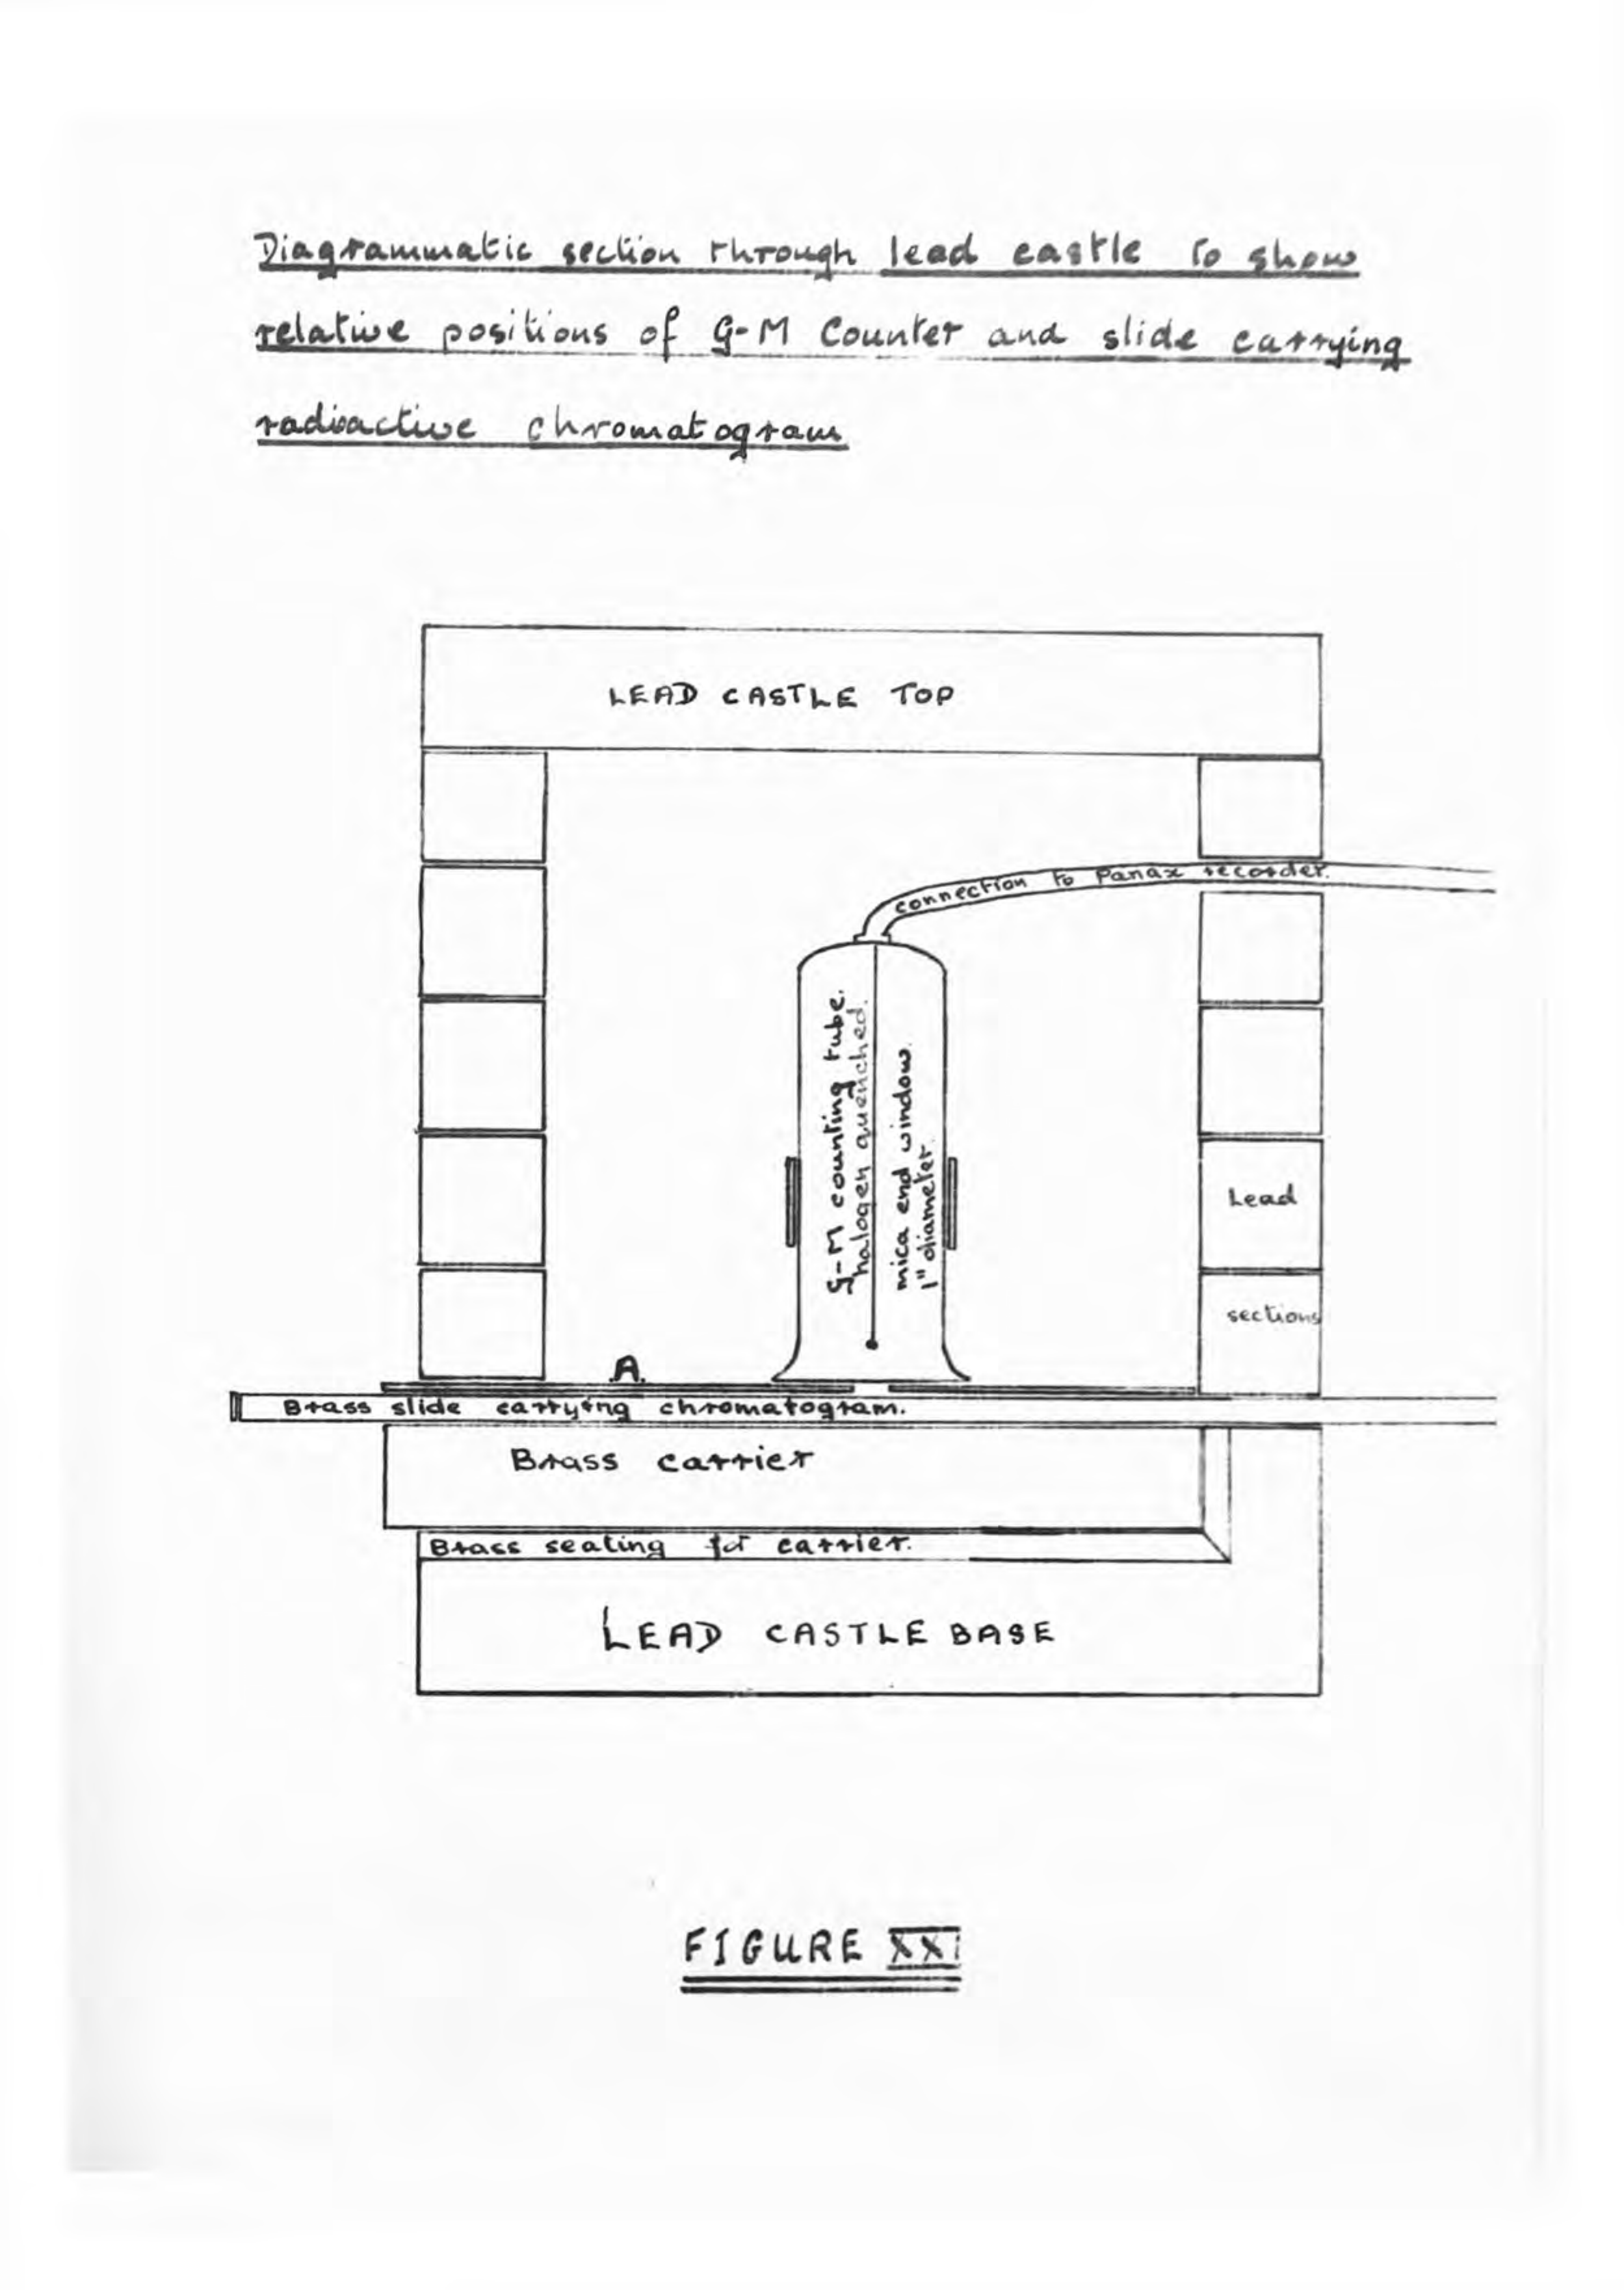 Diagrammatic section through lead castle to show
relative positions of G-M Counter and slide carrying
radioactive chromatogram
LEAD CASTLE TOP
connection to Panax recorder.
G-M counting tube.
halogen quenched.
mica end window.
1" diameter.
Lead
sections
A.
Brass slide carrying chromatogram.
Brass carrier
Brass seating for carrier.
LEAD CASTLE BASE
FIGURE XXI